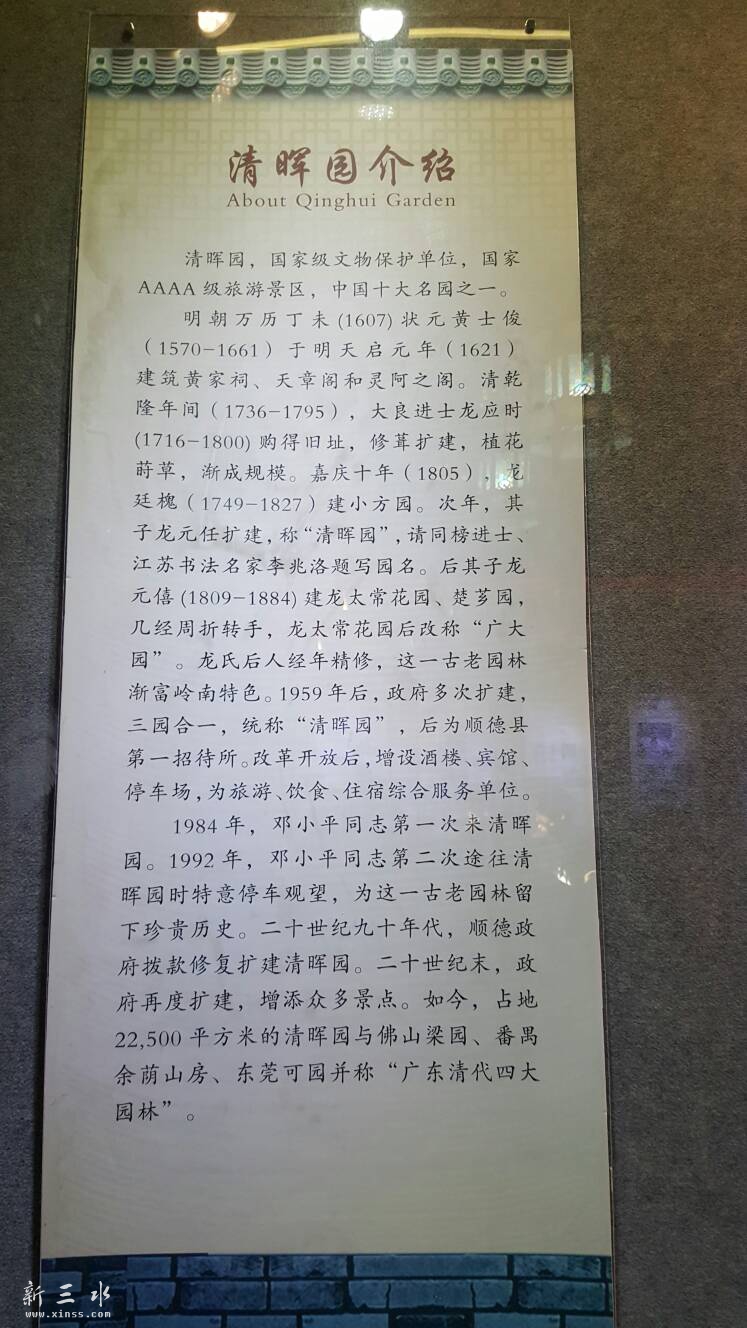 清晖园介绍
About Qinghui Garden
清晖园，国家级文物保护单位，国家
AAAA 级旅游景区，中国十大名园之一。
明朝万历丁未(1607)状元黄士俊
（1570-1661）于明天启元年（1621）
建筑黄家祠、天章阁和灵阿之阁。清乾
隆年间（1736-1795），大良进士龙应时
(1716-1800) 购得旧址，修葺扩建，植花
莳草，渐成规模。嘉庆十年（1805），龙
廷槐（1749-1827）建小方园。次年，其
子龙元任扩建，称“清晖园”，请同榜进士、
江苏书法名家李兆洛题写园名。后其子龙
元僖 (1809-1884) 建龙太常花园、楚芗园，
几经周折转手，龙太常花园后改称“广大
园”。龙氏后人经年精修，这一古老园林
渐富岭南特色。1959 年后，政府多次扩建，
三园合一，统称“清晖园”，后为顺德县
第一招待所。改革开放后，增设酒楼、宾馆、
停车场，为旅游、饮食、住宿综合服务单位。
1984 年，邓小平同志第一次来清晖
园。1992 年，邓小平同志第二次途往清
晖园时特意停车观望，为这一古老园林留
下珍贵历史。二十世纪九十年代，顺德政
府拨款修复扩建清晖园。二十世纪末，政
府再度扩建，增添众多景点。如今，占地
22,500 平方米的清晖园与佛山梁园、番禺
余荫山房、东莞可园并称“广东清代四大
园林”。
新三水
www.xinss.com